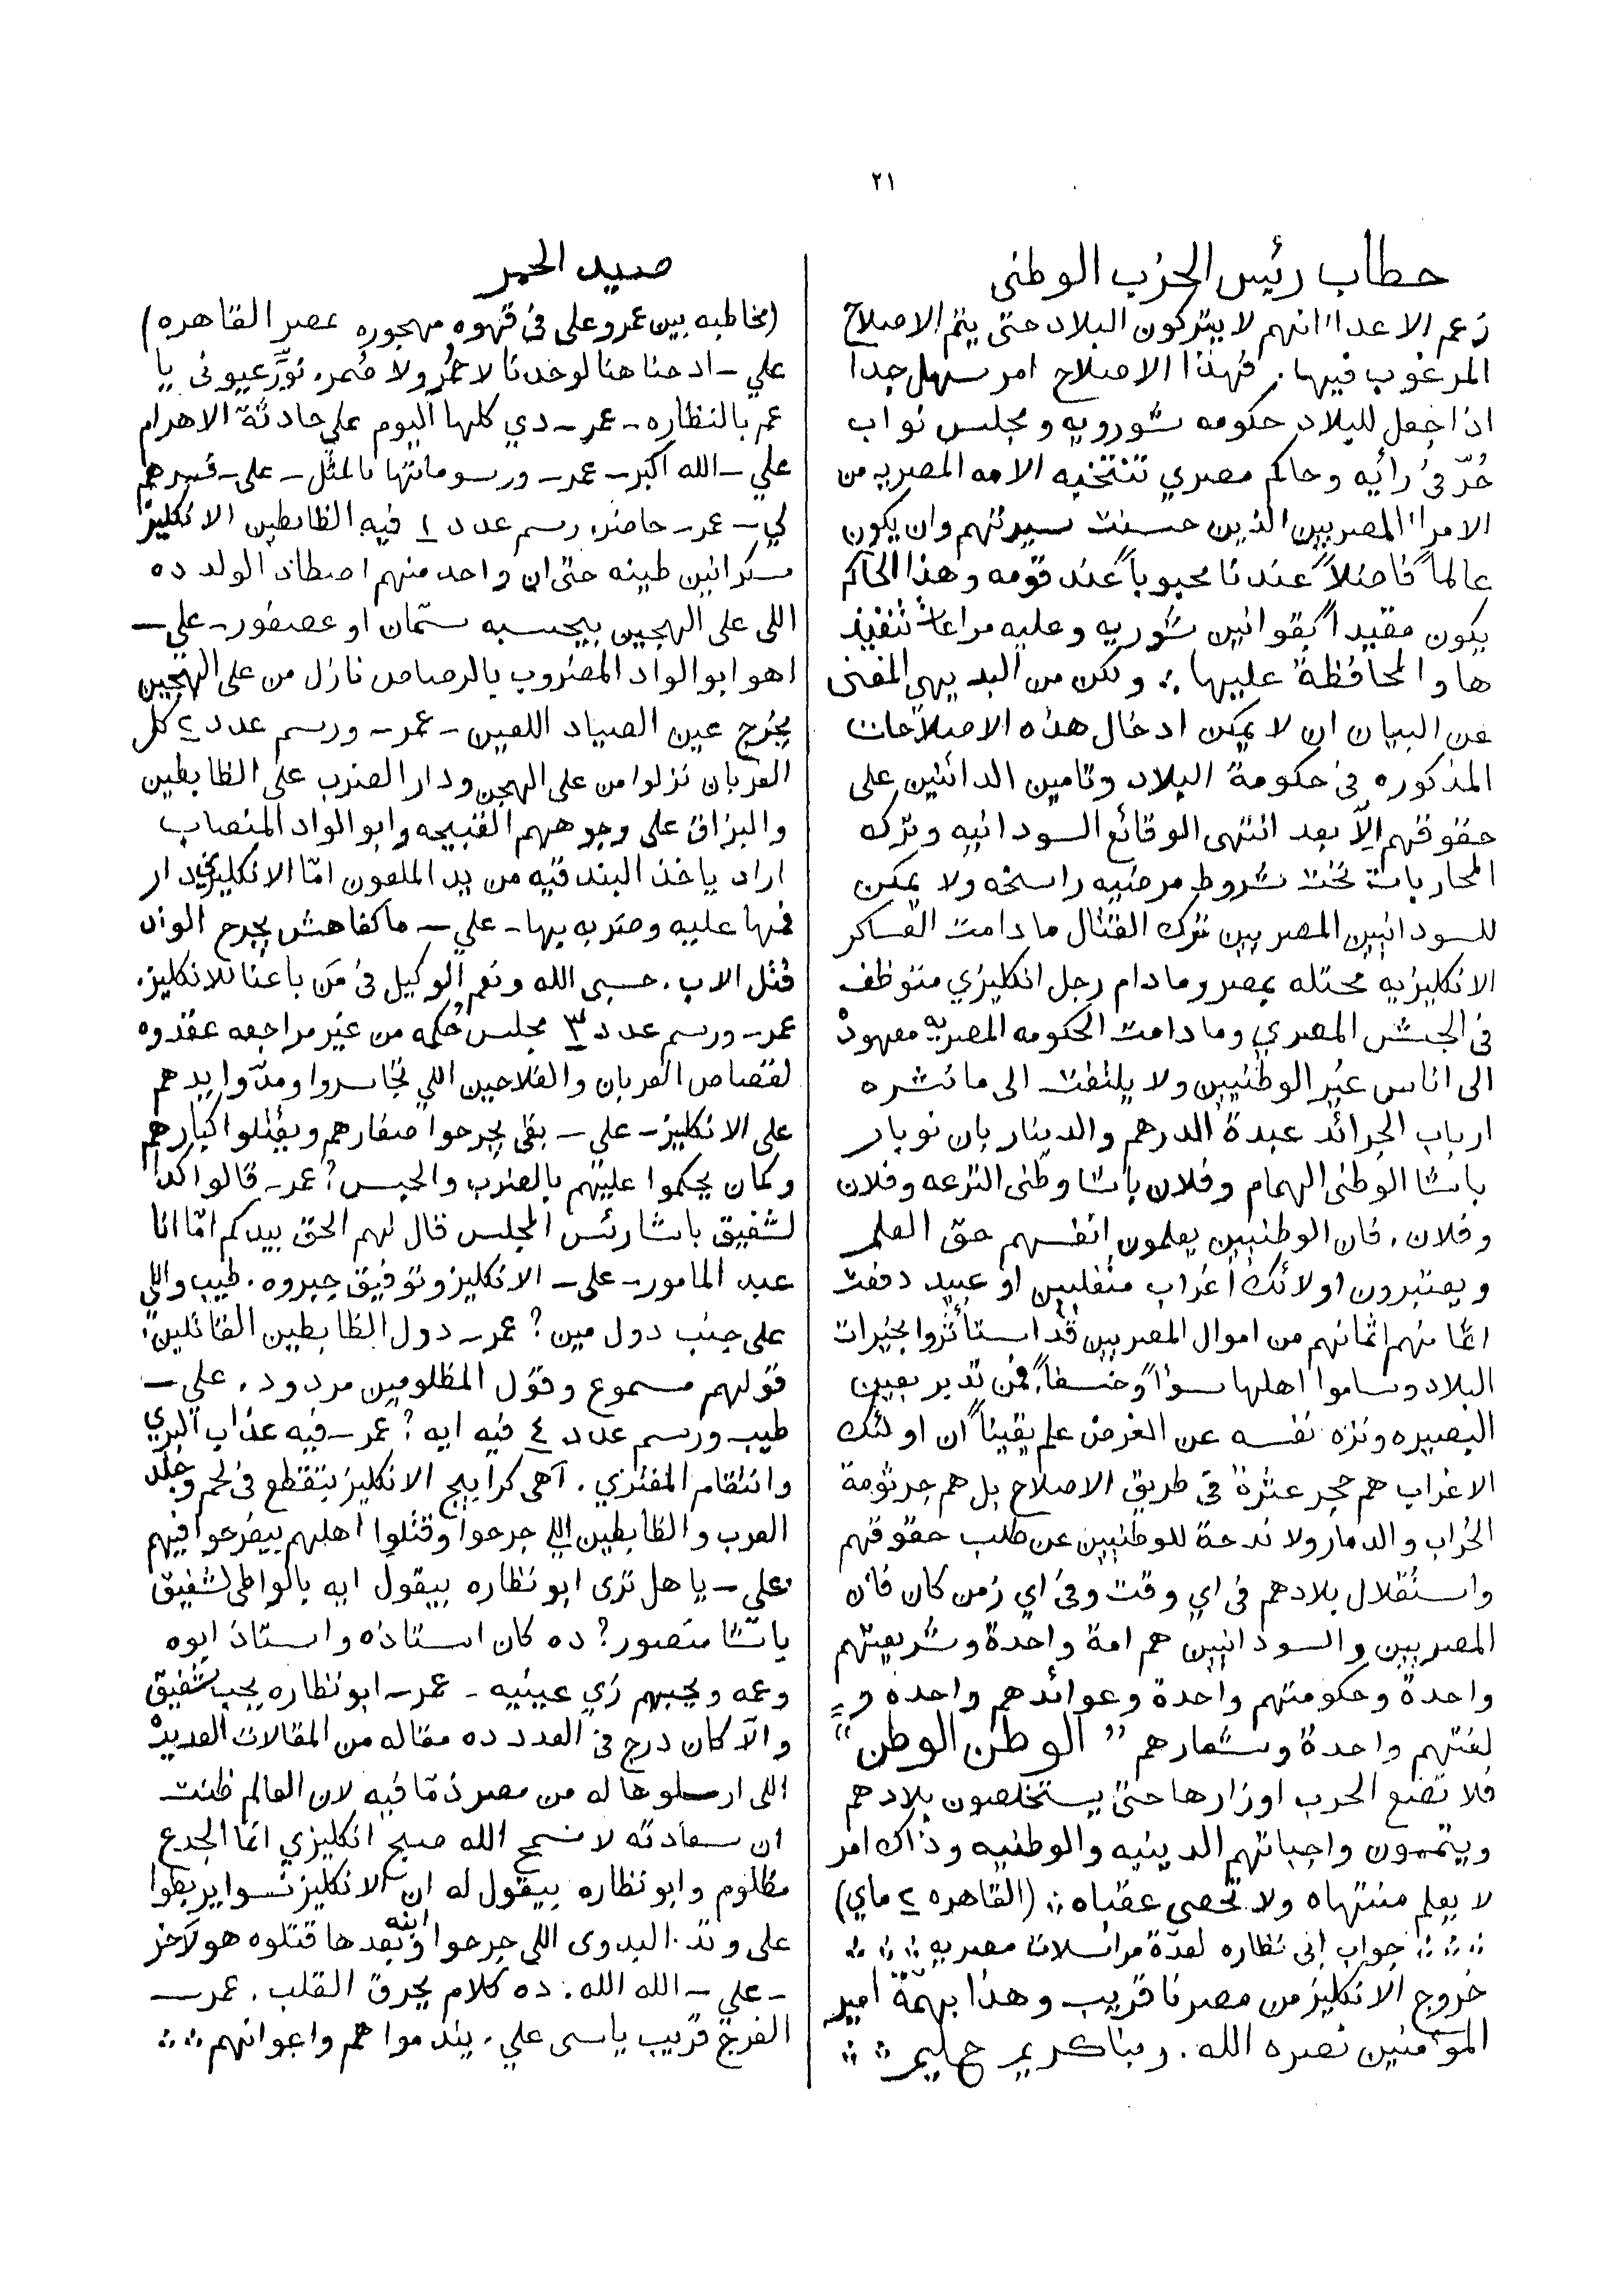 ٢١
حطاب رئيس الحزب الوطنى
زعم الاعداء انهم لا يتركون البلاد حتى يتم الاصلاح
المرغوب فيها. فهذا الاصلاح امر سهل جدا
اذا جعل للبلاد حكومه شورويه ومجلس نواب
حُرّ فى رأيه وحاكم مصري تنتخبه الامه المصريه من
الامراء المصريين الذين حسنت سيرتهم وان يكون
عالماً فاضلاً عندنا محبوباً عند قومه وهذا الحاكم
يكون مقيداً بقوانين شوريه وعليه مراعات تنفيذ
ها والمحافظة عليها ∴ ولكن من البديهي المغنى
عن البيان ان لا يمكن ادخال هذه الاصلاحات
المذكوره فى حكومة البلاد وتامين الدائنين على
حقوقهم الّا بعد انتهى الوقائع السودانيه وترك
المحاربات تحت شروط مرضيه راسخه ولا يمكن
للسودانيين المصريين ترك القتال ما دامت العساكر
الانكليزيه محتله بمصر وما دام رجل انكليزي متوظف
فى الجيش المصري وما دامت الحكومه المصريه معهودة
الى اناس غير الوطنيين ولا يلتفت الى ما تنشره
ارباب الجرائد عبدة الدرهم والدينار بان نوبار
باشا الوطنى الهمام وفلان باشا وطنى النزعه وفلان
وفلان. فان الوطنيين يعلمون انفسهم حق العلم
ويعتبرون اولائك اغراب متغلبين او عبيد دفعت
اثمانهم من اموال المصريين قد استأثروا بخيرات
البلاد وساموا اهلها سوءاً وخسفاً. فمن تدبر بعين
البصيره ونزه نفسه عن الغرض علم يقيناً ان اولئك
الاغراب هم حجر عثرة فى طريق الاصلاح بل هم جرثومة
الخراب والدمار ولا ندحة للوطنيين عن طلب حقوقهم
واستقلال بلادهم فى اي وقت وفى اي زمن كان فان
المصريين والسودانيين هم امة واحدة وشريعتهم
واحدة وحكومتهم واحدة وعوائدهم واحده و=
لغتهم واحدة وشعارهم ” الوطن الوطن “
فلا تضع الحرب اوزارها حتى يستخلصون بلادهم
ويتممون واجباتهم الدينيه والوطنيه وذاك امر
لا يعلم منتهاه ولا تحصى عقباه ∴ (القاهره ٢ ماي)
∴ ∴ جواب ابى نظاره لعدّة مراسلات مصريه ∴ ∴
خروج الانكليز من مصرنا قريب وهذا بهمّة امير
المؤمنين نصره الله. ربنا كريم حليم ∴ ∴
صيد الحمر
(مخاطبه بين عمر وعلى فى قهوه مهجوره بمصر القاهره)
علي ـ ادحنا هنا لوحدنا لا حمُر ولا ضُمر. نوَّر عيونى يا
عمر بالنظاره ـ عمر ـ دي كلها اليوم على حادثة الاهرام
علي ـ الله اكبر ـ عمر ـ ورسوماتها بالمثل ـ على ـ فسرهم
لي ـ عمر ـ حاضر. رسم عدد ١ فيه الظابطين الانكليز
سكرانين طينه حتى ان واحد منهم اصطاد الولد ده
اللى على الهجين بيحسبه سمّان او عصفور ـ علي ـ
اهو ابو الواد المضروب بالرصاص نازل من على الهجين
يخرج عين الصياد اللعين ـ عمر ـ ورسم عدد ٢ كل
العربان نزلوا من على الهجن ودار الضرب على الظابطين
والبزاق على وجوههم القبيحه وابو الواد المنصاب
اراد ياخذ البندقيه من يد الملعون امّا الانكليزي دار
فمها عليه وضربه بها ـ علي ـ ما كفاهش يجرح الواد
قتل الاب. حسبى الله ونعم الوكيل فى مَن باعنا للانكليز.
عمر ـ ورسم عدد ٣ مجلس حُكمه من غير مراجعه عقدوه
لقصاص العربان والفلاحين اللي تجاسروا ومدّوا يدهم
على الانكليز ـ علي ـ بقى يجرحوا صغارهم ويقتلوا كبارهم
وكمان يحكموا عليهم بالضرب والحبس؟ عمر ـ قالوا كدا
لشفيق باشا رئس المجلس قال لهم الحق بيدكم امّا انا
عبد المامور ـ على ـ الانكليز وتوفيق جبروه. طيب واللي
على جنب دول مين؟ عمر ـ دول الظابطين القاتلين.
قولهم مسموع وقول المظلومين مردود. علي ـ
طيب ورسم عدد ٤ فيه ايه؟ عمر ـ فيه عذاب البري
وانتقام المفتري. آهى كرابيج الانكليز بتقطع فى لحم وجلد
العرب والظابطين اللي جرحوا وقتلوا اهلهم بيفرحوا فيهم
علي ـ يا هل ترى ابو نظاره بيقول ايه يالواطى لشفيق
باشا منصور؟ ده كان استاذه واستاذ ابوه
وعمه ويحبهم زي عينيه ـ عمر ـ ابو نظاره يحب شفيق
والّا كان درج فى العدد ده مقاله من المقالات العديدة
اللى ارسلوها له من مصر ذمّا فيه لان العالم ظنت
ان سعادته لا سمح الله صبح انكليزي انما الجدع
مظلوم وابو نظاره بيقول له ان الانكليز نسوا يربطوا
على وتد البدوى اللى جرحوا ابنه وبعدها قتلوه هو لاخر
ـ علي ـ الله الله. ده كلام يحرق القلب. عمر ـ
الفرج قريب ياسى علي. يندموا هم واعوانهم ∴ ∴